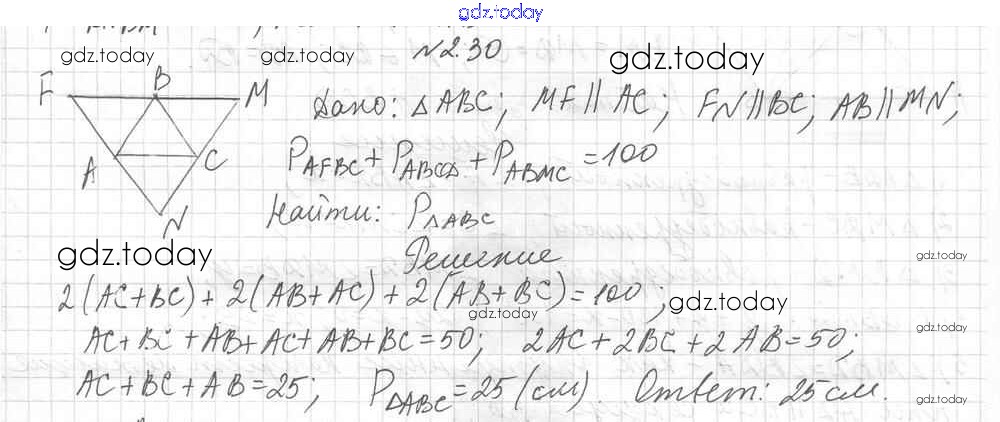 gdz.today
№2.30
gdz.today gdz.today gdz.today
F B M
Дано: △ABC; MF || AC; FN || BC; AB || MN;
A C
P_AFBC + P_ABCN + P_ABMC = 100
N
Найти: P_△ABC
gdz.today Решение gdz.today
2(AC+BC) + 2(AB+AC) + 2(AB+BC) = 100; gdz.today
gdz.today
AC+BC+AB+AC+AB+BC=50; 2AC+2BC+2AB=50; gdz.today
AC+BC+AB=25; P_△ABC=25 (см). Ответ: 25 см.
gdz.today